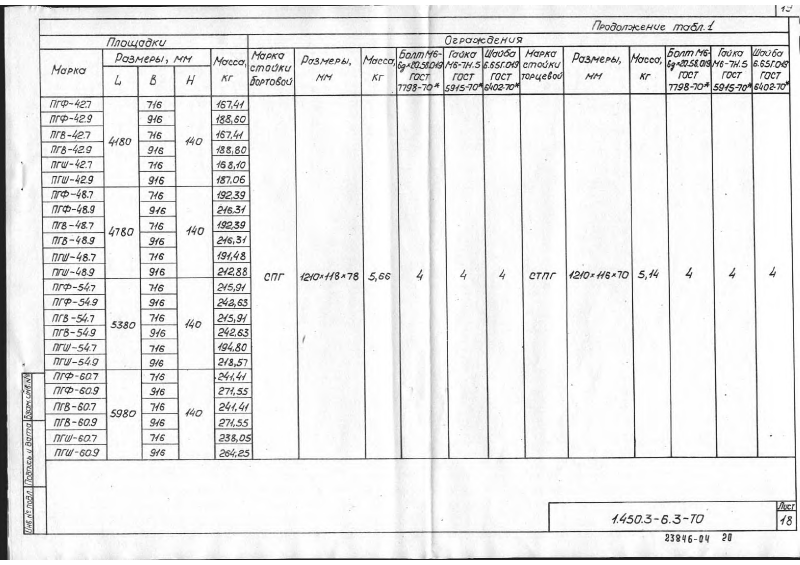 Продолжение табл. 1
Площадки Ограждения
Марка Размеры, мм Масса, кг Марка стойки бортовой Размеры, мм Масса, кг Болт М6-6g×20.58.019 ГОСТ 7798-70* Гайка М6-7Н.5 ГОСТ 5915-70* Шайба 6.65Г.019 ГОСТ 6402-70* Марка стойки торцевой Размеры, мм Масса, кг Болт М6-6g×20.58.019 ГОСТ 7798-70* Гайка М6-7Н.5 ГОСТ 5915-70* Шайба 6.65Г.019 ГОСТ 6402-70*
L B H
ПГФ-42.7 4180 716 140 167,41
ПГФ-42.9 916 188,60
ПГВ-42.7 716 167,41
ПГВ-42.9 916 188,80
ПГШ-42.7 716 168,10
ПГШ-42.9 916 187,06
ПГФ-48.7 4780 716 140 192,39
ПГФ-48.9 916 216,31
ПГВ-48.7 716 192,39
ПГВ-48.9 916 216,31
ПГШ-48.7 716 191,48
ПГШ-48.9 916 212,88
СПГ 1210×118×78 5,66 4 4 4 СТПГ 1210×116×70 5,14 4 4 4
ПГФ-54.7 5380 716 140 215,91
ПГФ-54.9 916 242,63
ПГВ-54.7 716 215,91
ПГВ-54.9 916 242,63
ПГШ-54.7 716 194,80
ПГШ-54.9 916 218,57
ПГФ-60.7 5980 716 140 241,41
ПГФ-60.9 916 271,55
ПГВ-60.7 716 241,41
ПГВ-60.9 916 271,55
ПГШ-60.7 716 238,05
ПГШ-60.9 916 264,25
Инв.№ подл. Подпись и дата Взам.инв.№
1.450.3-6.3-ТО
Лист
18
23846-04 20